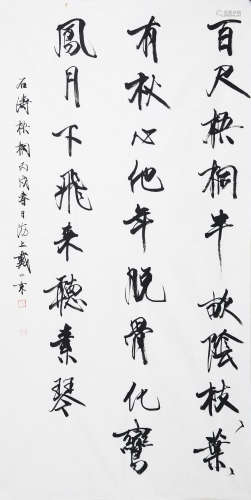 百尺梧桐半畝陰枝葉
有秋心他年脫骨化鸞
鳳月下飛来聽素琴
石濤松桐丙戌春日海上戴小京